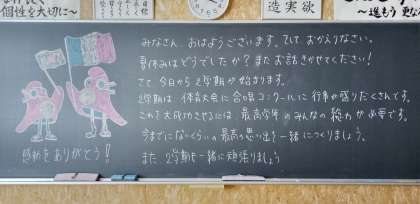 個性を大切に〜
造実欲
みなさん、おはようございます。そして、おかえりなさい。
夏休みはどうでしたか？またお話きかせてください！
さて今日から2学期が始まります。
2学期は、体育大会に合唱コンクールに行事が盛りだくさんです。
これを大成功させるには、最高学年のみんなの協力が必要です。
今までにないくらいの最高の思い出を一緒につくりましょう。
また 2学期も一緒に頑張りましょう
感動をありがとう！